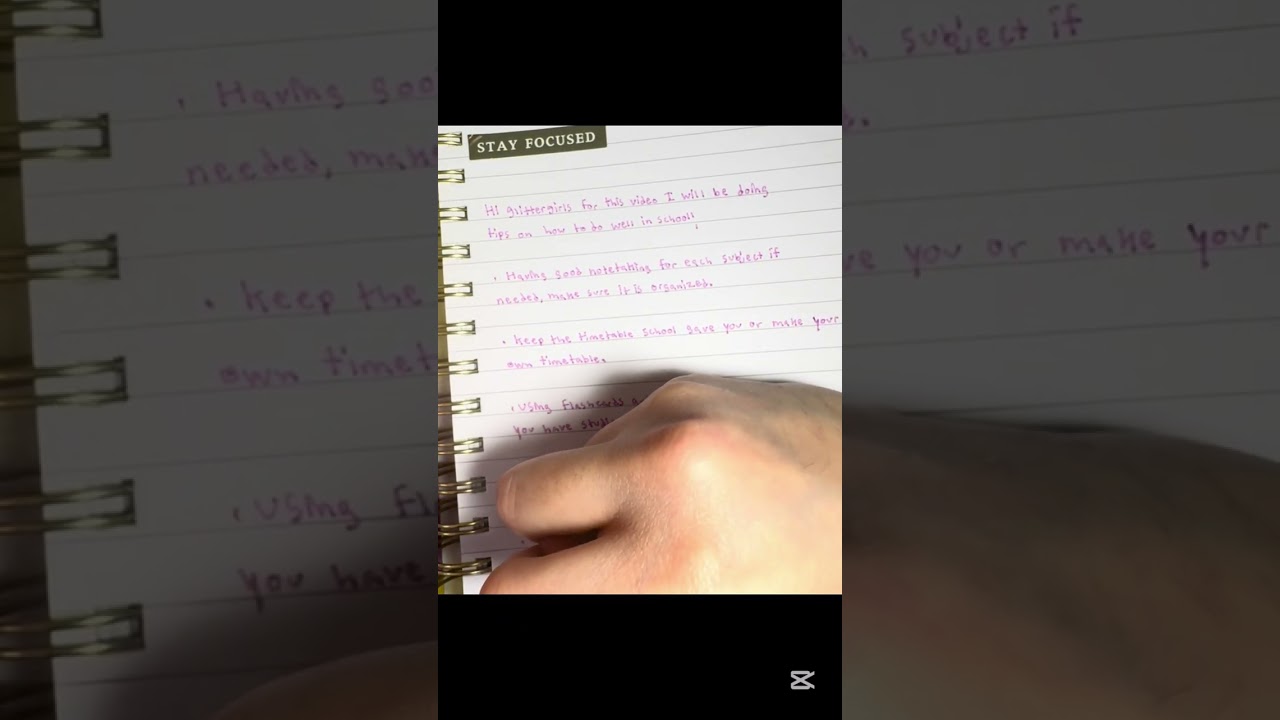 STAY FOCUSED
Hi glittergirls for this video I will be doing
tips on how to do well in school!
. Having good notetaking for each subject if
needed, make sure it is organized.
. Keep the timetable school gave you or make your
own timetable.
. Using Flashcards
you have